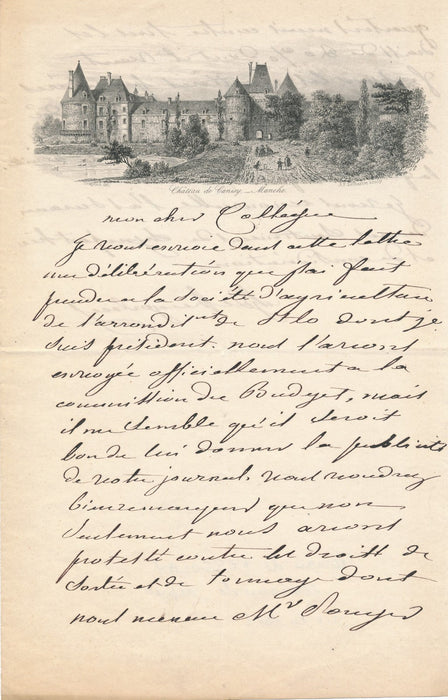 Château de Canisy _ Manche.
mon cher Collègue
Je vous envoie dans cette lettre
une délibération que j'ai fait
prendre a la Société d'agriculture
de l'arrondist de St Lo dont je
suis président. nous l'avons
envoyée officiellement a la
commission du Budget, mais
il me semble qu'il seroit
bon de lui donner la publicité
de votre journal. vous voudrez
bien remarquer que non
seulement nous avons
protesté contre les droits de
sortie et de tonnage dont
nous menace Mr